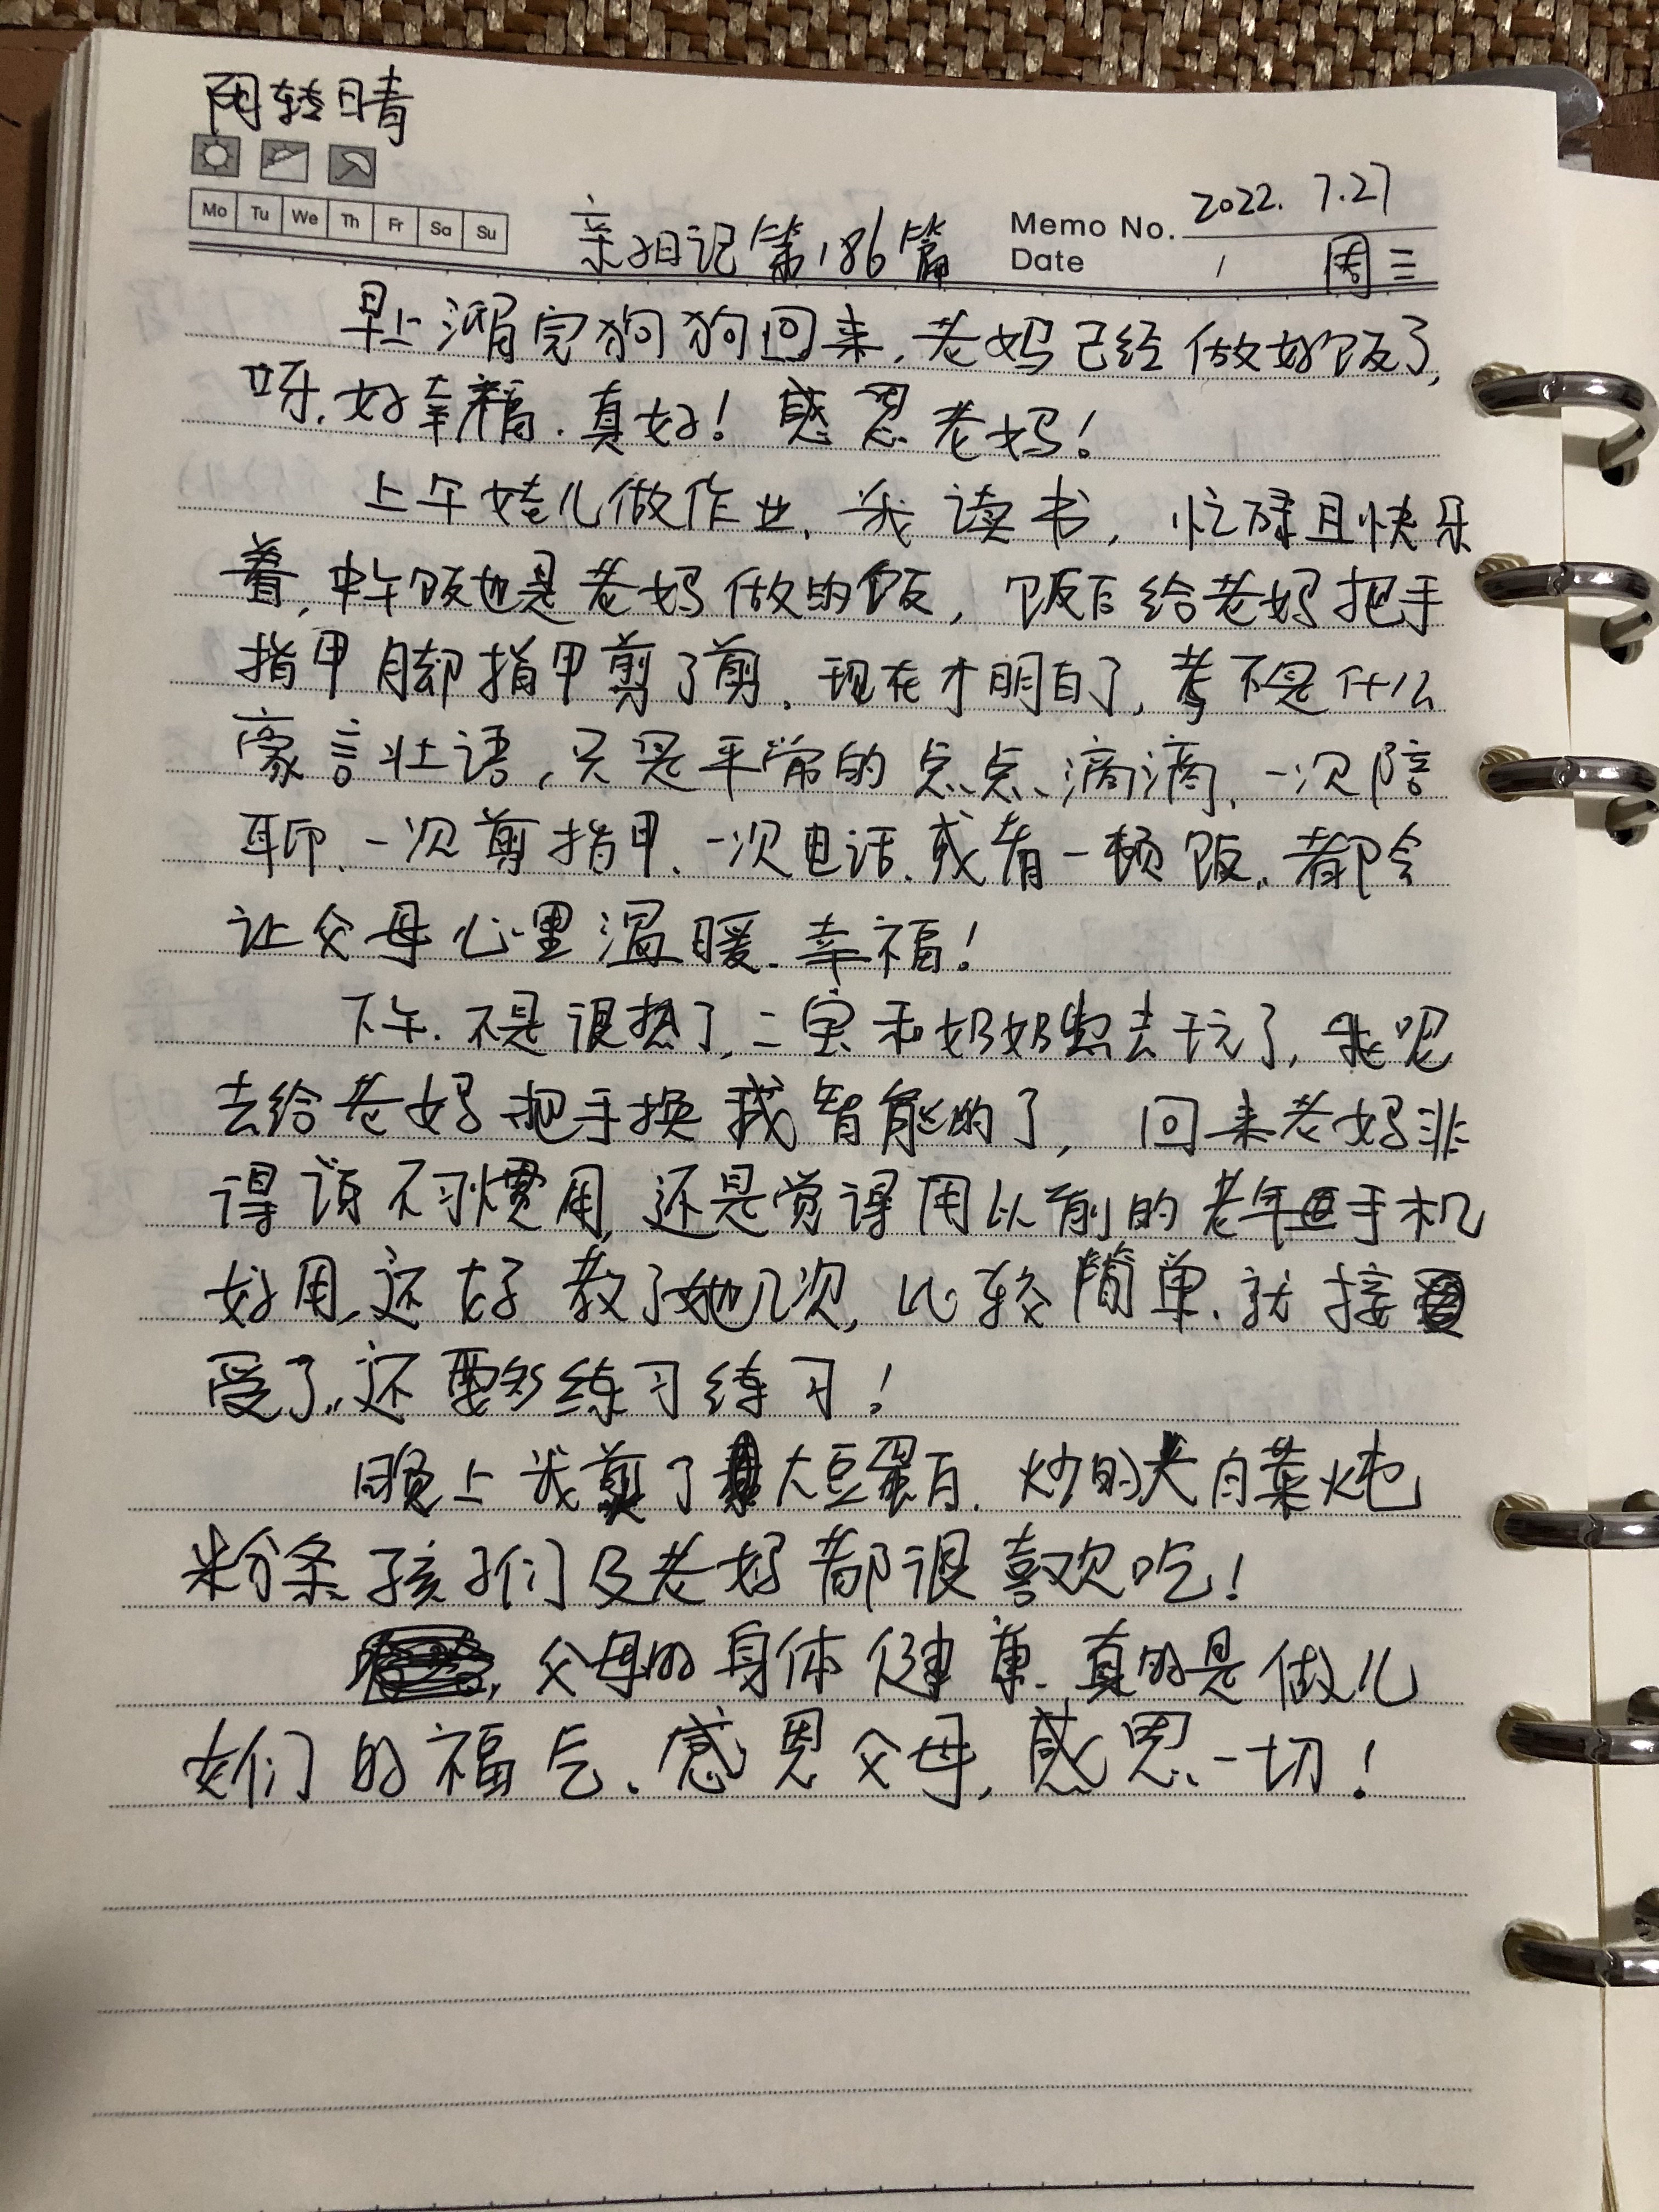 阴转晴
Mo Tu We Th Fr Sa Su
Memo No. 2022. 7.27
亲日记第186篇
Date / 周三
早上溜完狗狗回来,老妈已经做好饭了,
呀,好幸福.真好!感恩老妈!
上午娃儿做作业,我读书,忙碌且快乐
着,中午饭也是老妈做的饭,饭后给老妈把手
指甲脚指甲剪了剪.现在才明白了,孝不是什么
豪言壮语,只是平常的点点滴滴、一次陪
聊、一次剪指甲、一次电话、或者一顿饭.都会
让父母心里温暖.幸福!
下午.不是很热了,二宝和奶奶出去玩了,我呢
去给老妈把手换成智能的了,回来老妈非
得说不习惯用,还是觉得用以前的老年手机
好用,还好教了她几次,比较简单.就接
受了,还要多练习练习!
晚上我煎了大豆蛋白.炒的大白菜炖
粉条,孩子们及老妈都很喜欢吃!
父母的身体健康.真的是做儿
女们的福气.感恩父母,感恩一切!